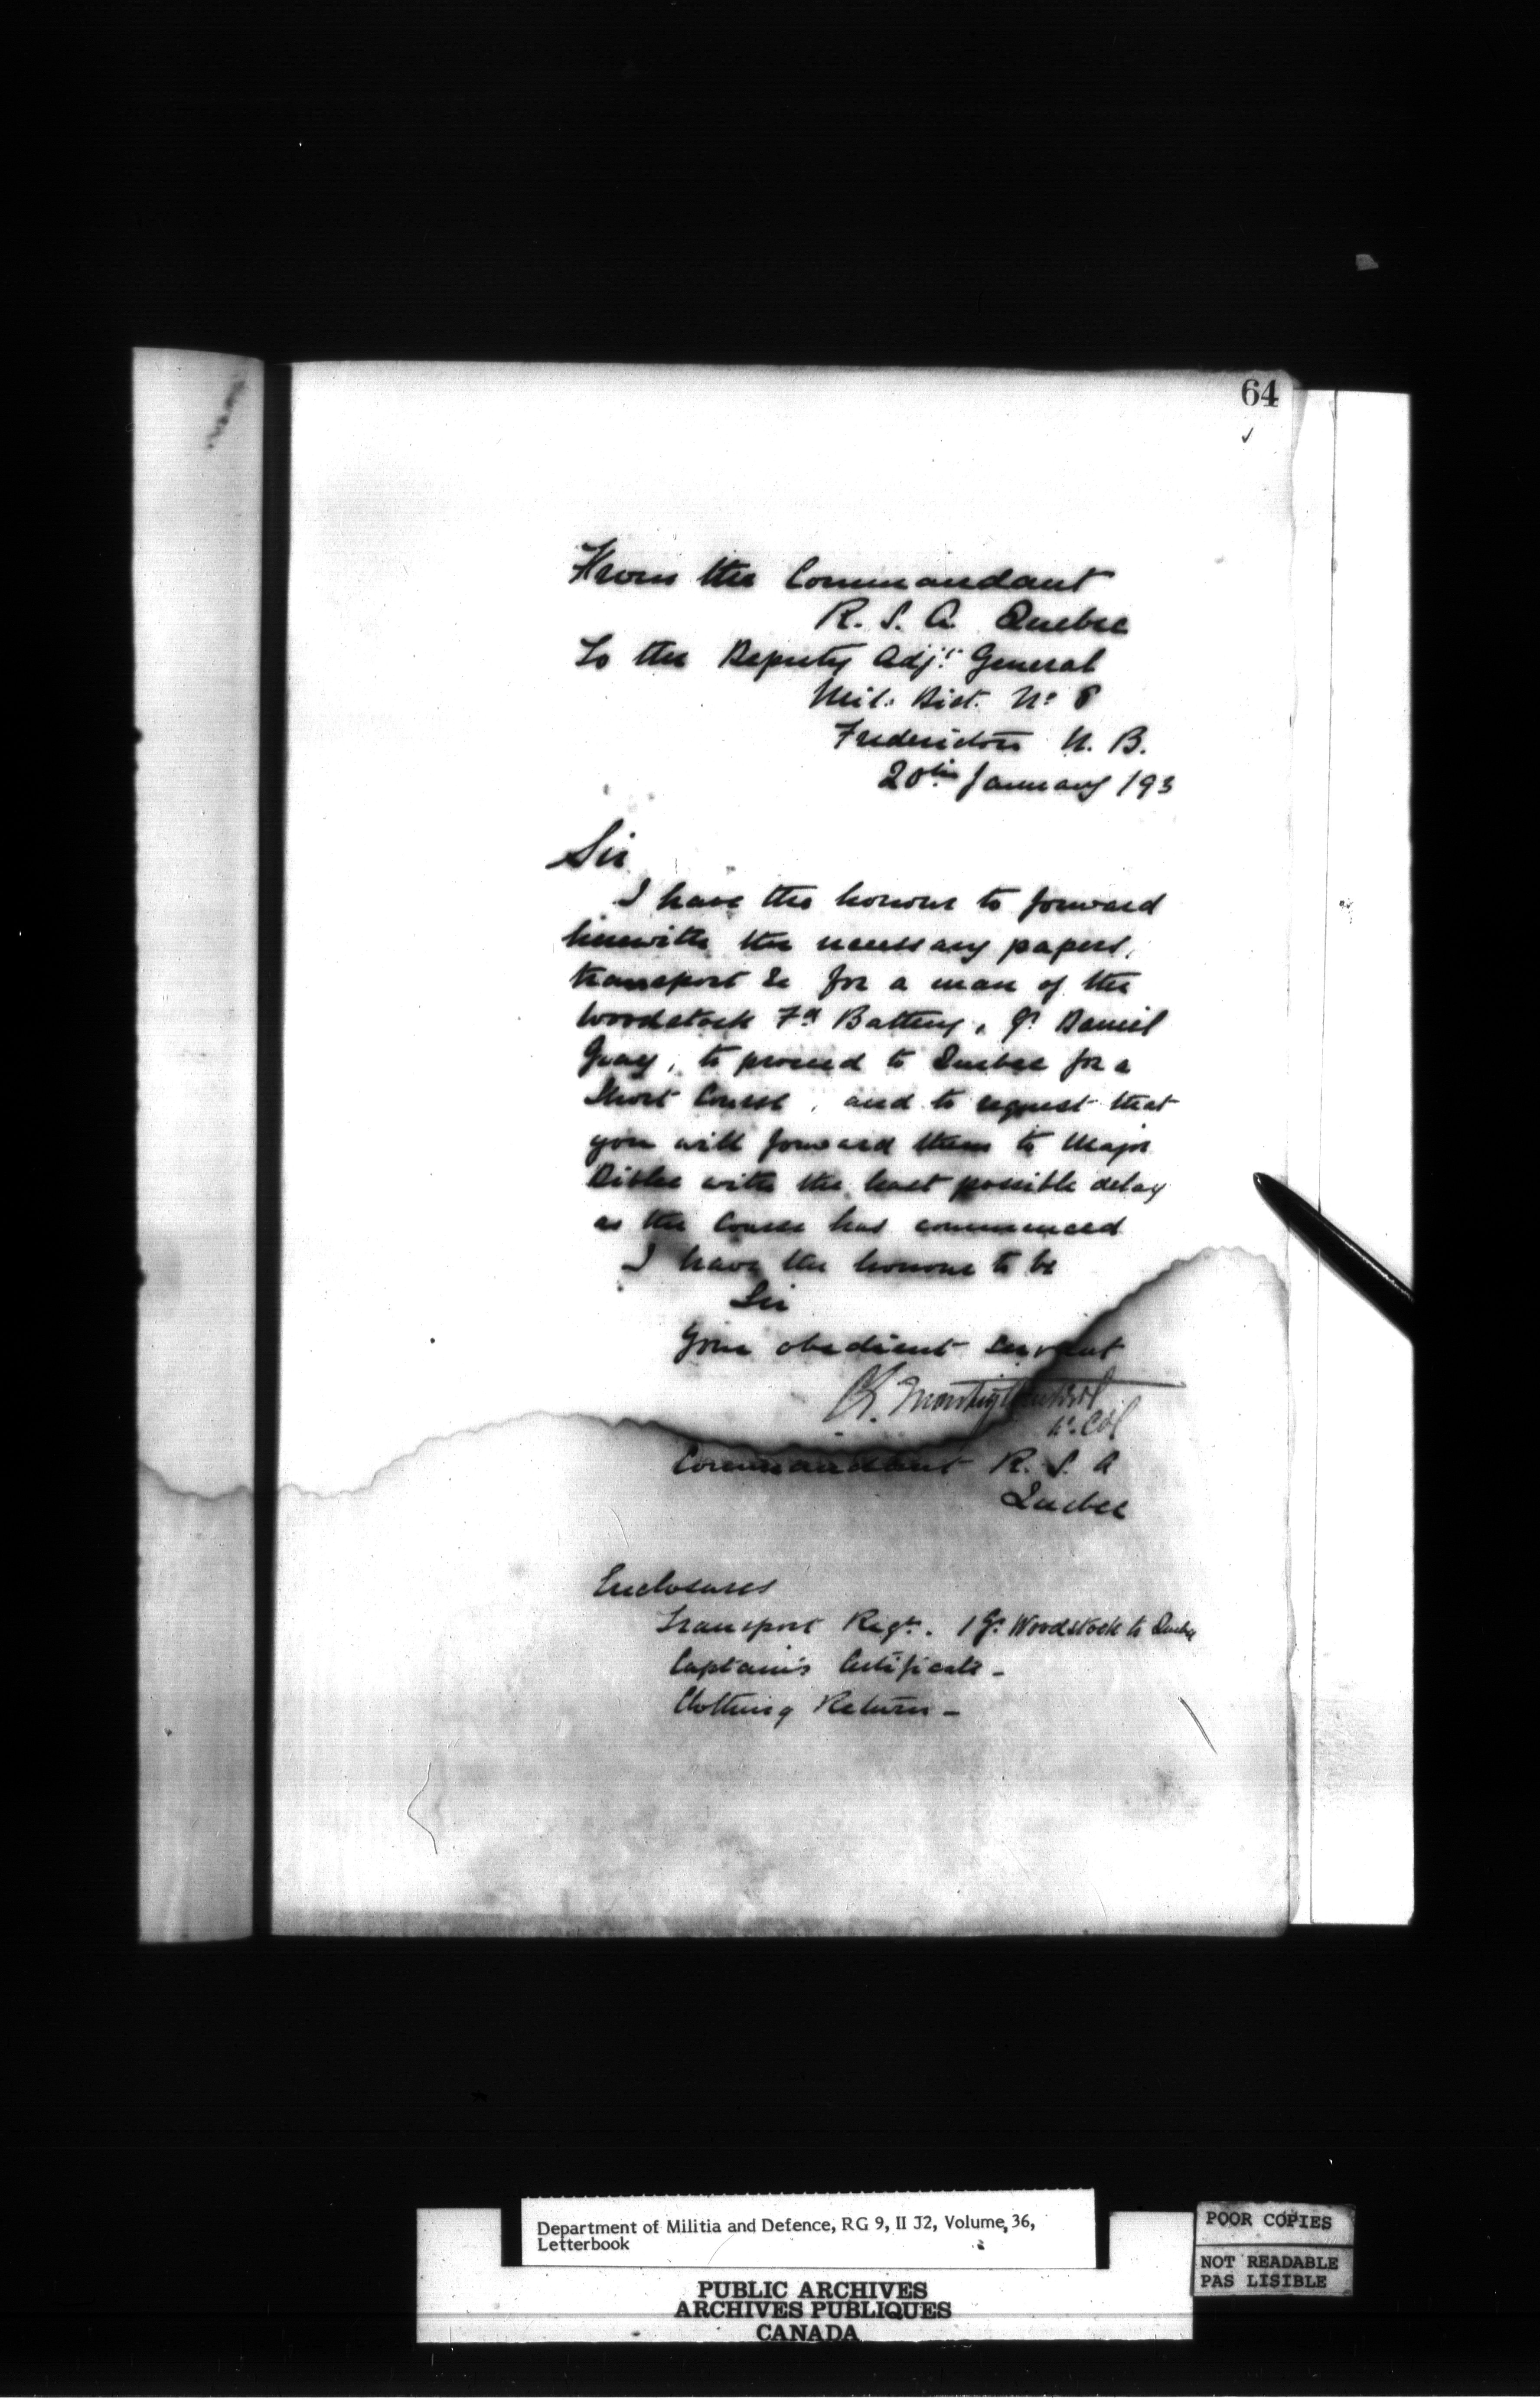 64
From the Commandant
R. S. A. Quebec
To the Deputy Adjt General
Mil. Dist. No 8
Fredericton N. B.
20th January 193
Sir
I have the honour to forward
herewith the necessary papers,
transport &c for a man of the
Woodstock Fd Battery, Gr Daniel
Gray, to proceed to Quebec for a
Short Course, and to request that
you will forward them to Major
Dibblee with the least possible delay
as the Course has commenced
I have the honour to be
Sir
Your obedient servant
Lt. Col
Commandant R. S. A
Quebec
Enclosures
Transport Reqn. 1 Gr. Woodstock to Quebec
Captain's Certificate -
Clothing Return -
Department of Militia and Defence, RG 9, II J2, Volume, 36,
Letterbook
POOR COPIES
NOT READABLE
PAS LISIBLE
PUBLIC ARCHIVES
ARCHIVES PUBLIQUES
CANADA